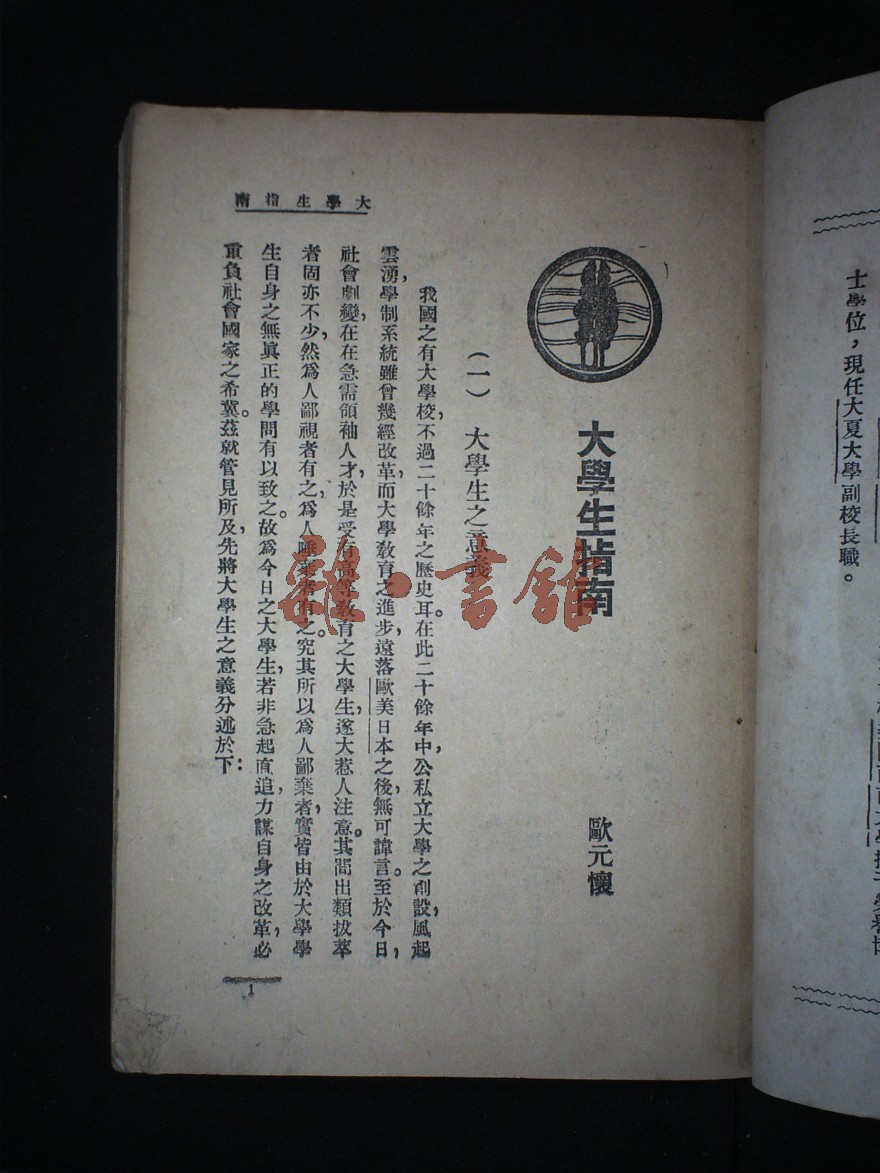 士學位，現任大夏大學副校長職。
大學生指南
歐元懷
(一) 大學生之意義
我國之有大學校，不過二十餘年之歷史耳。在此二十餘年中，公私立大學之創設，風起
雲湧，學制系統雖曾幾經改革，而大學教育之進步，遠落歐美日本之後，無可諱言。至於今日，
社會劇變，在在急需領袖人才，於是受有高等教育之大學生，遂大惹人注意。其間出類拔萃
者固亦不少，然爲人鄙視者有之，爲人唾棄者有之。究其所以爲人鄙棄者，實皆由於大學學
生自身之無眞正的學問有以致之。故爲今日之大學生，若非急起直追，力謀自身之改革，必
重負社會國家之希冀。茲就管見所及，先將大學生之意義分述於下：
大學生指南
1
雜·書館